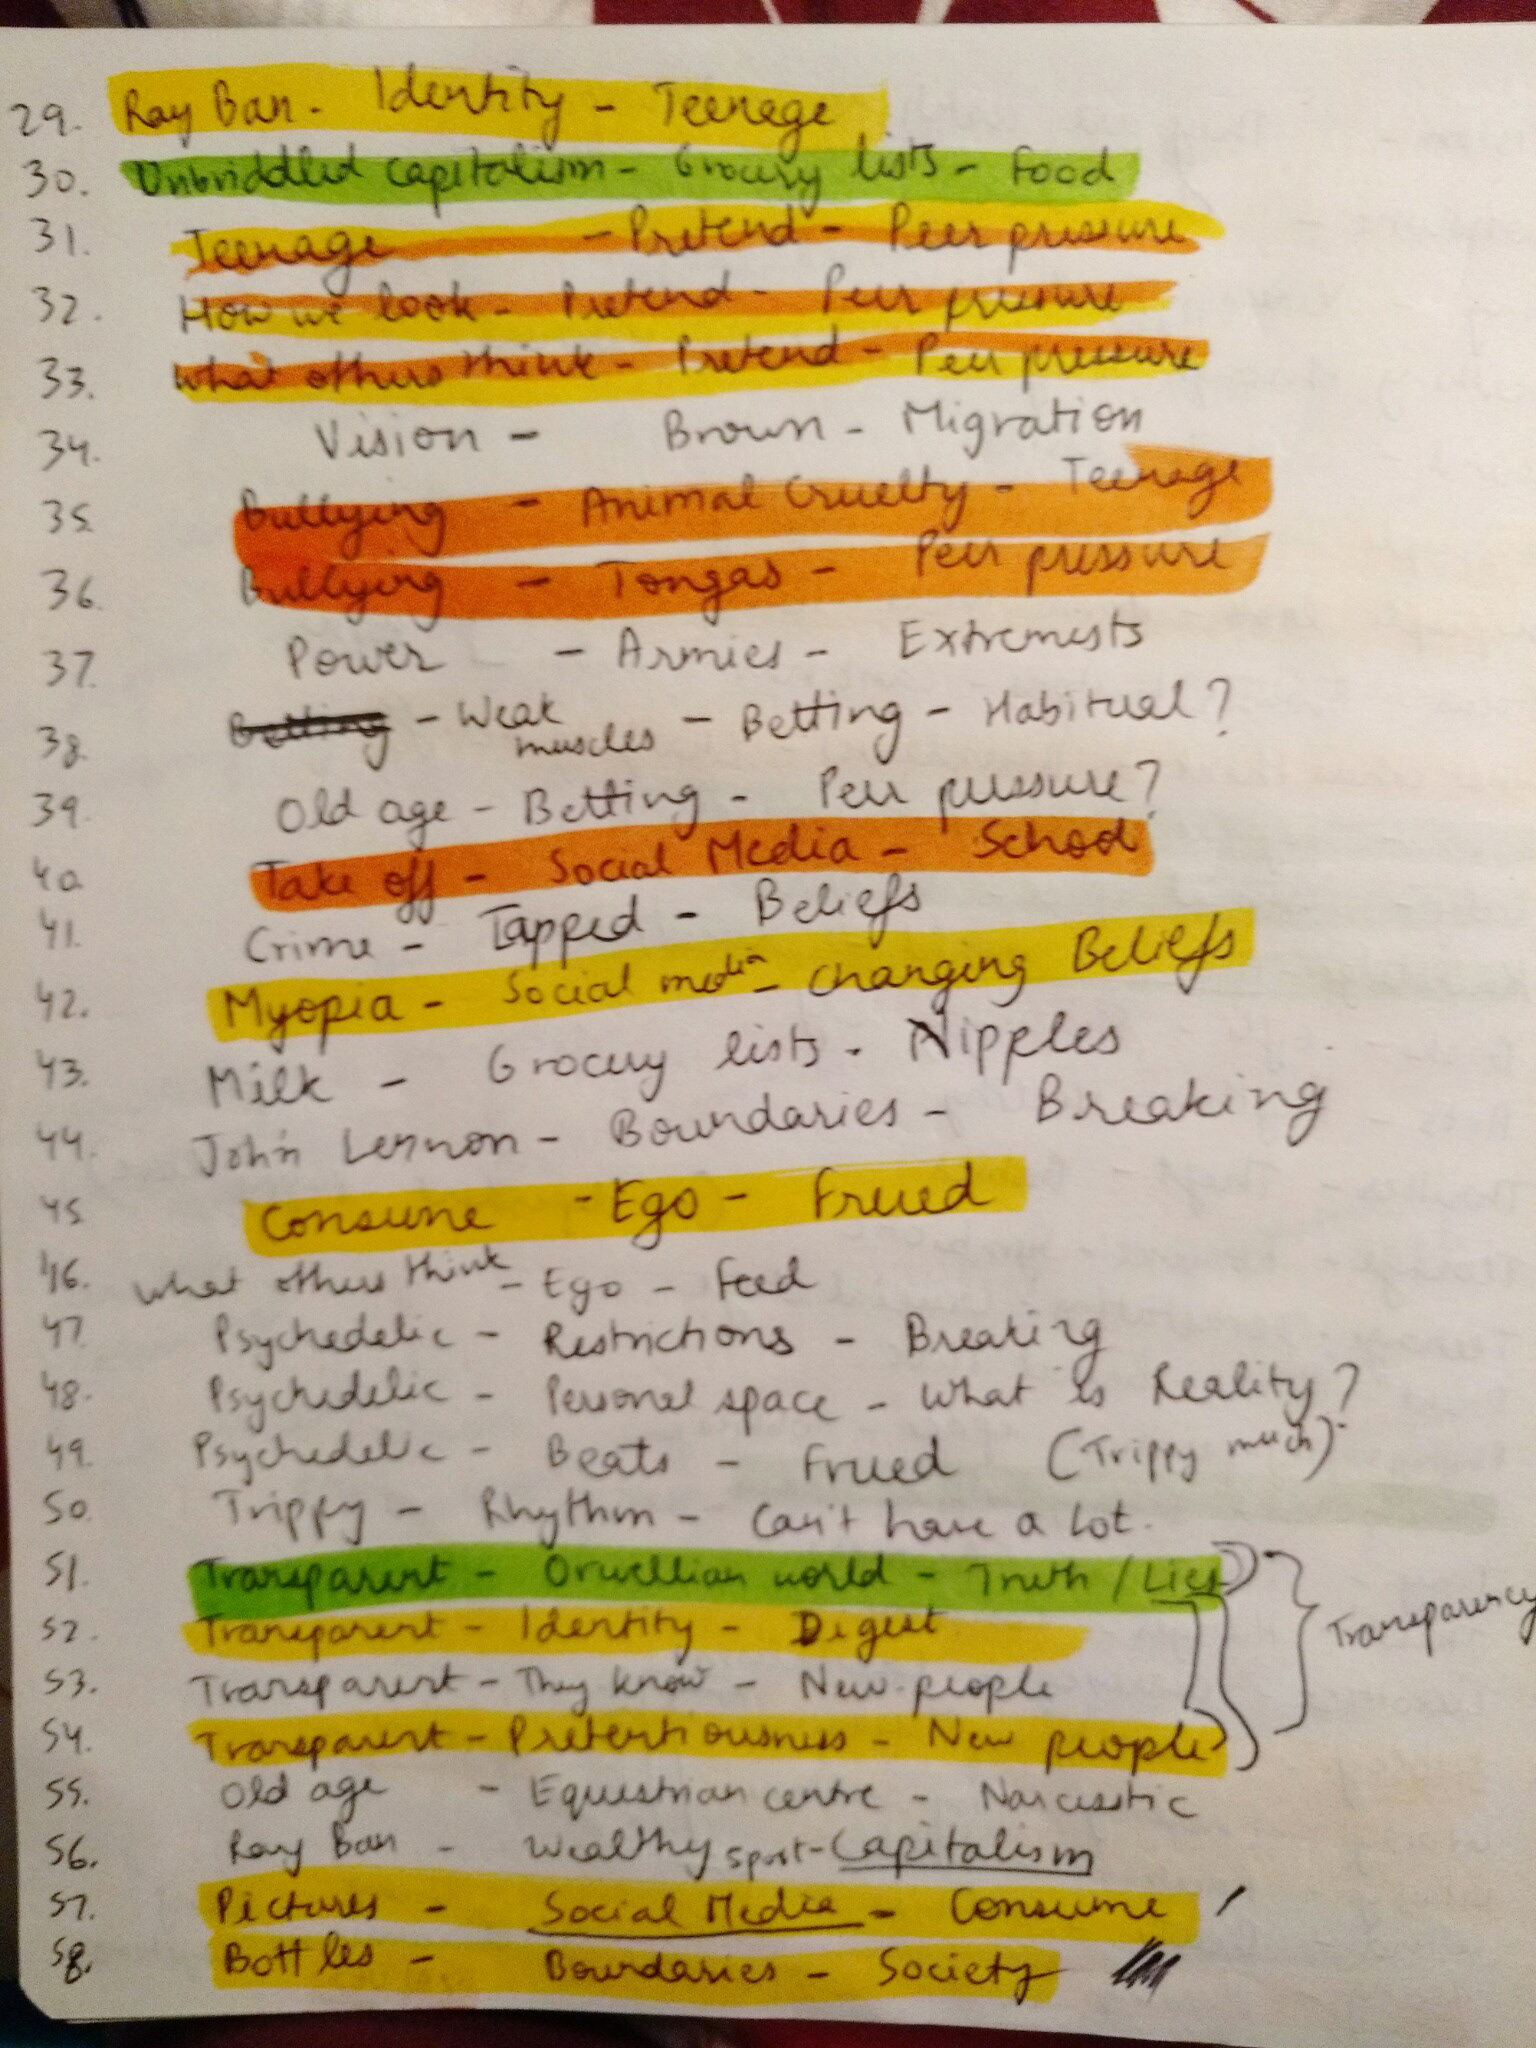 29. Ray Ban - Identity - Teenage
30. Unbriddled capitalism - Grocery lists - Food
31. Teenage - Pretend - Peer pressure
32. How we look - Pretend - Peer pressure
33. What others think - Pretend - Peer pressure
34. Vision - Brown - Migration
35. Bullying - Animal Cruelty - Teenage
36. Bullying - Tongas - Peer pressure
37. Power - Armies - Extremists
38. Betting - Weak muscles - Betting - Habitual?
39. Old age - Betting - Peer pressure?
40 Take off - Social Media - School
41. Crime - Tapped - Beliefs
42. Myopia - Social media - Changing Beliefs
43. Milk - Grocery lists - Nipples
44. John Lennon - Boundaries - Breaking
45 Consume - Ego - Frued
46. What others think - Ego - Feed
47. Psychedelic - Restrictions - Breaking
48. Psychedelic - Personal space - What is Reality?
49. Psychedelic - Beats - Frued (Trippy much)
50. Trippy - Rhythm - Can't have a lot.
51. Transparent - Orwellian world - Truth / Lies
52. Transparent - Identity - Digest
Transparency
53. Transparent - They know - New people
54. Transparent - Pretentiousness - New people
55. Old age - Equestrian centre - Narcisstic
56. Ray Ban - Wealthy sport - Capitalism
57. Pictures - Social Media - Consume
58. Bottles - Boundaries - Society